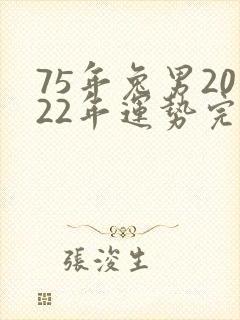 75年兔男20
22年運勢完
張浚生